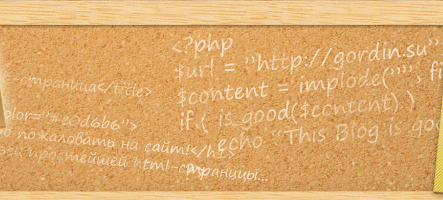 <?php
$url = "http://gordin.su"
$content = implode("", fi
if ( is_good($content) )
echo "This Blog is goo
-страница</title>
olor="#e0d6b6">
о пожаловать на сайт!</h1>
простейшей html-страницы...